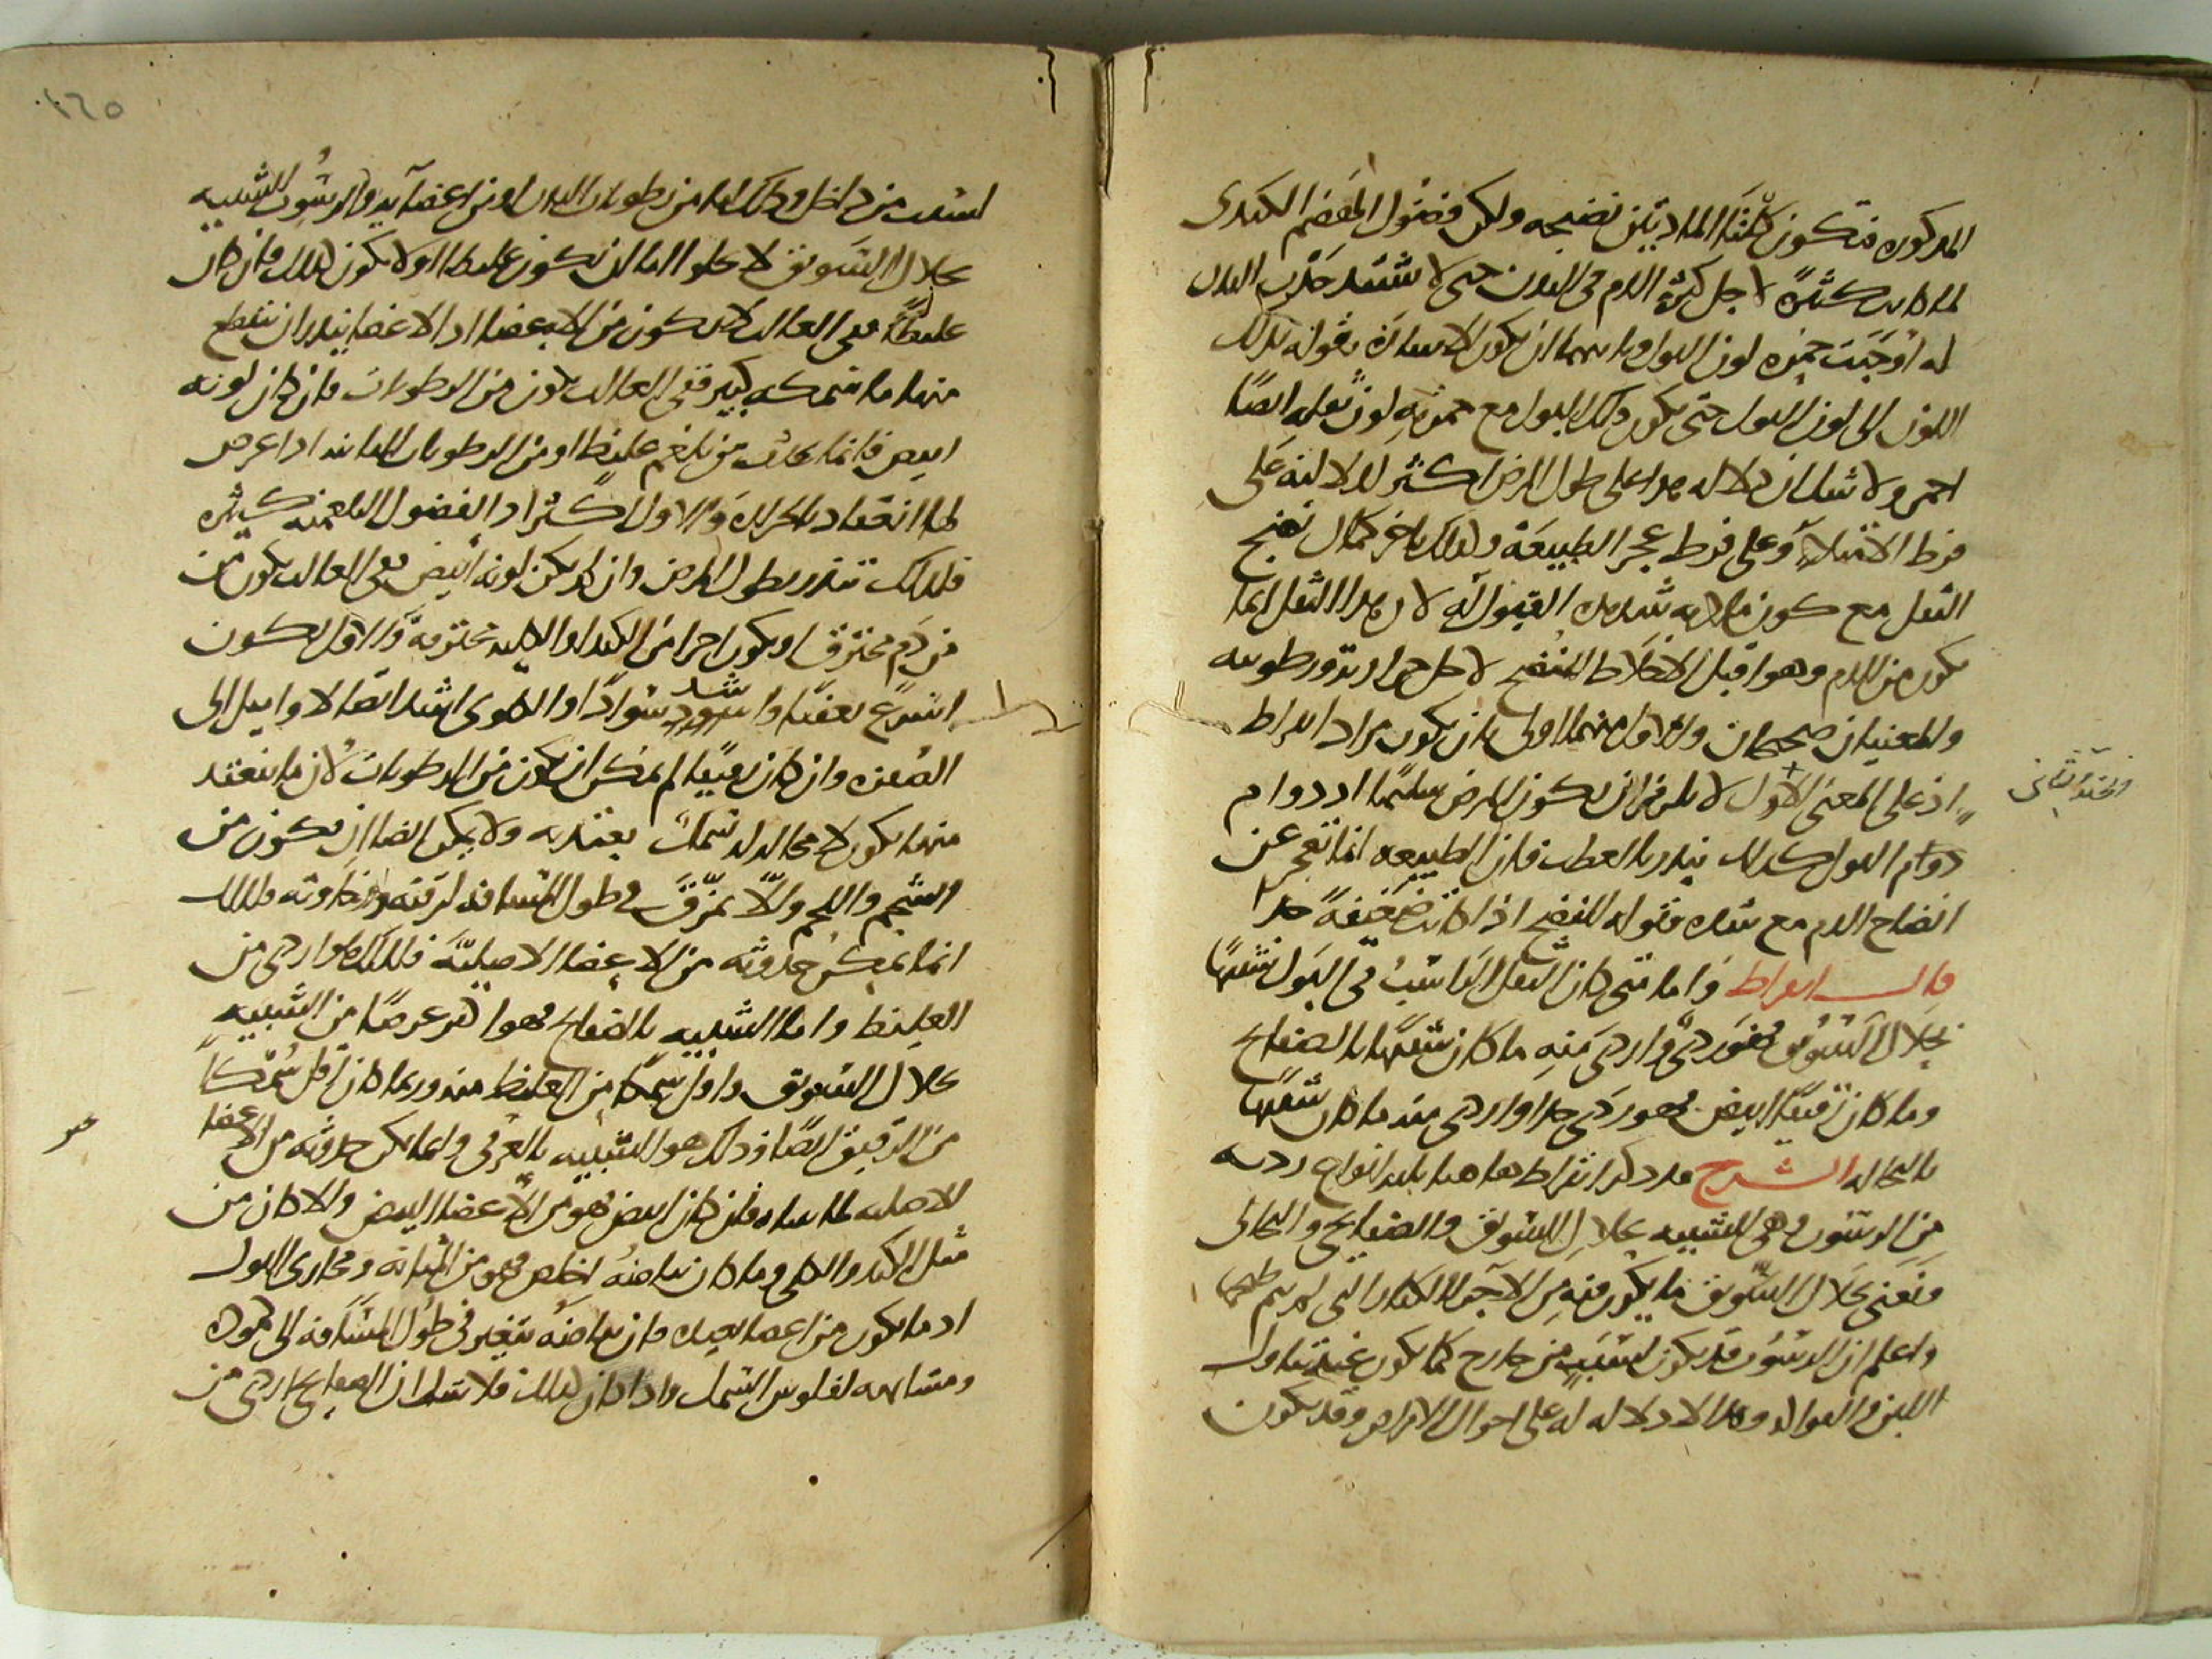 المذكورة فتكون كلتا المادتين نضيجه ولكن فضول الهضم الكبدى
لما كانت كثيرة لاجل كثرة الدم فى البدن حتى لا يشتد جذب البدن
له اوجبت حمرة لون البول وثانيهما ان يكون الاشارة بقوله بذلك
اللون الى لون البول حتى يكون ذلك البول مع حمرته لون ثفله ايضًا
احمر ولا شك ان دلالة هذا على طول المرض اكثر لدلالته على
فرط الامتلاء وعلى فرط عجز الطبيعة ولذلك تاخر كمال نضج
الثفل مع كون مادته شديدة القبول له لان هذا الثفل انما
يكون من الدم وهو اقبل الاخلاط للنضج لاجل حرارته ورطوبته
والمعنيان صحيحان والاول منهما اولى بان يكون مراد ابقراط
اذ على المعنى الاول لا يلزم ان يكون المرض سليمًا اذ دوام
دوام البول كذلك ينذر بالعطب فان الطبيعه انما تعجز عن
انضاج الدم مع شدة قبوله للنضج اذا كانت ضعيفة جدا
قال ابقراط واما متى كان الثفل الراسب فى البول شبيهًا
بجلال السويق فهو ردى واردى منه ما كان شبيهًا بالصفايح
وما كان رقيقًا ابيض فهو ردى جدا واردى منه ما كان شبيهًا
بالنخاله الشرح قد ذكر ابقراط هاهنا ثلثه انواع رديه
من الرسوب وهى الشبيه بجلال السويق والصفايحى والنخالى
ونعنى بجلال السويق ما يكون فيه من الاجزاء الكبار التى لم يتم طحنها
واعلم ان الرسوب قد يكون لسبب من خارج كما يكون عند تناول
اللبن والفواكه وهذا لا دلاله له على احوال الامراض وقد يكون
لسبب من داخل وذلك اما من رطوبات البدن او من اعضائه والرسوب الشبيه
بجلال السويق لا يخلو اما ان يكون غليظا او لا يكون كذلك فان كان
غليظًا ففى الغالب لا يكون من الاعضاء اذ الاعضا يندر ان ينقطع
منها ما سمكه كبير ففى الغالب يكون من الرطوبات فان كان لونه
ابيض فانما يحدث من بلغم غليظ او من الرطوبات المائية اذا عرض
لها انعقاد بالحرارة والاول اكثر اذ الفضول البلغميه كثيره
فلذلك تنذر بطول المرض وان لم يكن لونه ابيض ففى الغالب يكون من
من دم محترق او يكون اجزا من الكبد او الكليه محترقة والاول يكون
اسرع تفتتا واشد سوادًا والكلوى اشد ايضا لا وايل الى
الصفره وان كان رقيقًا لم يمكن ان يكون من الرطوبات لان ما ينعقد
منها يكون لا محاله له سمك يعتد به ولا يمكن ايضا ان يكون من
الشحم واللحم والا تمزق فى طول المسافه لرقته ورخاوته فلذلك
انما يمكن حدوثه من الاعضاء الاصلية فلذلك هو اردى من
الغليظ واما الشبيه بالصفايح فهو اكثر عرضًا من الشبيه
بجلال السويق واقل سمكًا من الغليظ منه وربما كان اقل سمكًا
من الرقيق ايضًا وذلك هو الشبيه بالعرفى وانما يمكن حدوثه من الاعضا
الاصليه لما بيناه فان كان ابيض فهو من الاعضاء البيض والا كان من
مثل الكبد والكلى وما كان بياضه اخلص فهو من المثانه ومجارى البول
اذ ما يكون من اعضا بعيده فان بياضه يتغير فى طول المسافه الى كمودة
ومشابهه لفلوس السمك واذا كان كذلك فلا شك ان الصفايحى اردى من